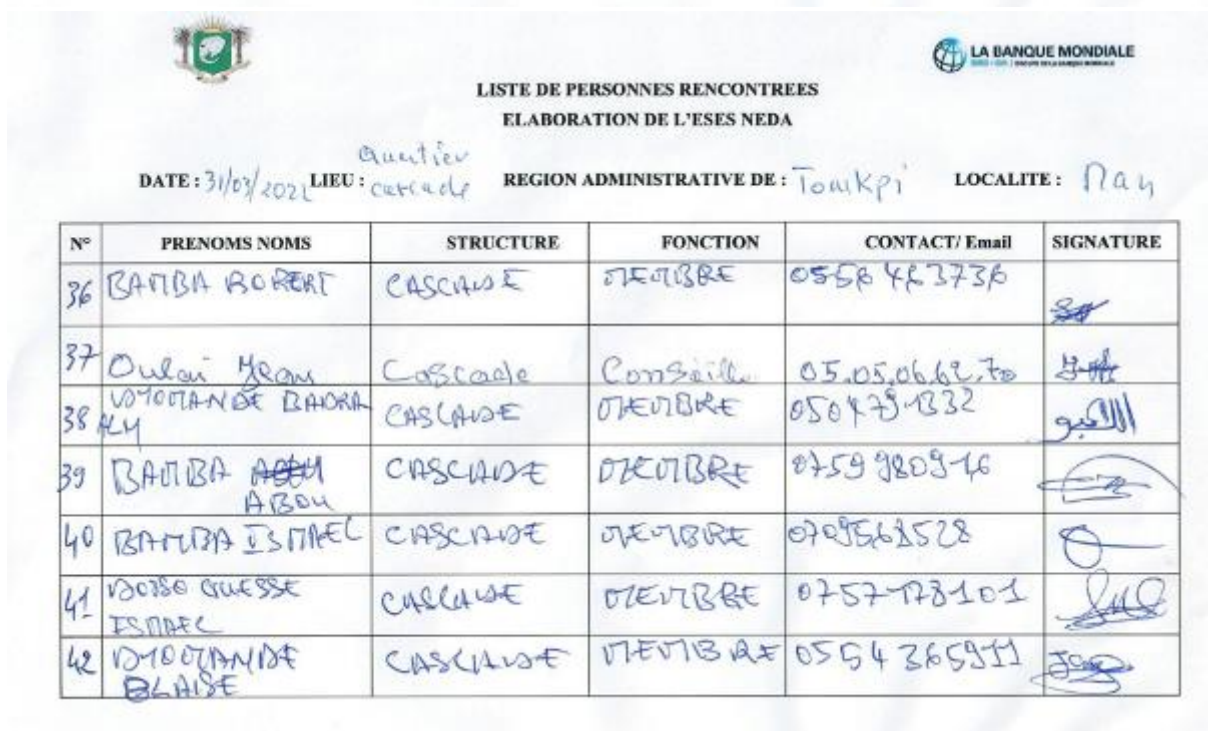 LA BANQUE MONDIALE
LISTE DE PERSONNES RENCONTREES
ELABORATION DE L'ESES NEDA
DATE : 31/03/2022 LIEU : Quartier cascade REGION ADMINISTRATIVE DE : Tonkpi LOCALITE : Man
N° PRENOMS NOMS STRUCTURE FONCTION CONTACT/ Email SIGNATURE
36 BAMBA ROBERT CASCADE MEMBRE
37 Oulai Jean Cascade Conseille 05.05.06.62.70
38 DIOMANDE BADRA ALY CASCADE MEMBRE 0504791332
39 BAMBA ABOU CASCADE MEMBRE 0759980916
40 BAMBA ISMAEL CASCADE MEMBRE 0709568528
41 DOSSO GUESSE ISMAEL CASCADE MEMBRE 0757178101
42 DIOMANDE BLAISE CASCADE MEMBRE 0554365911